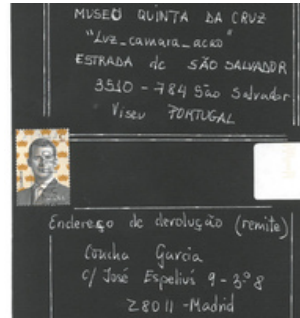 MUSEO QUINTA DA CRUZ
"Luz_camara_acao"
ESTRADA de SÃO SALVADOR
3510 - 784 São Salvador
Viseu PORTUGAL
Endereço de devolução (remite)
Concha Garcia
c/ José Espeliús 9 - 3º 8
28011 - Madrid